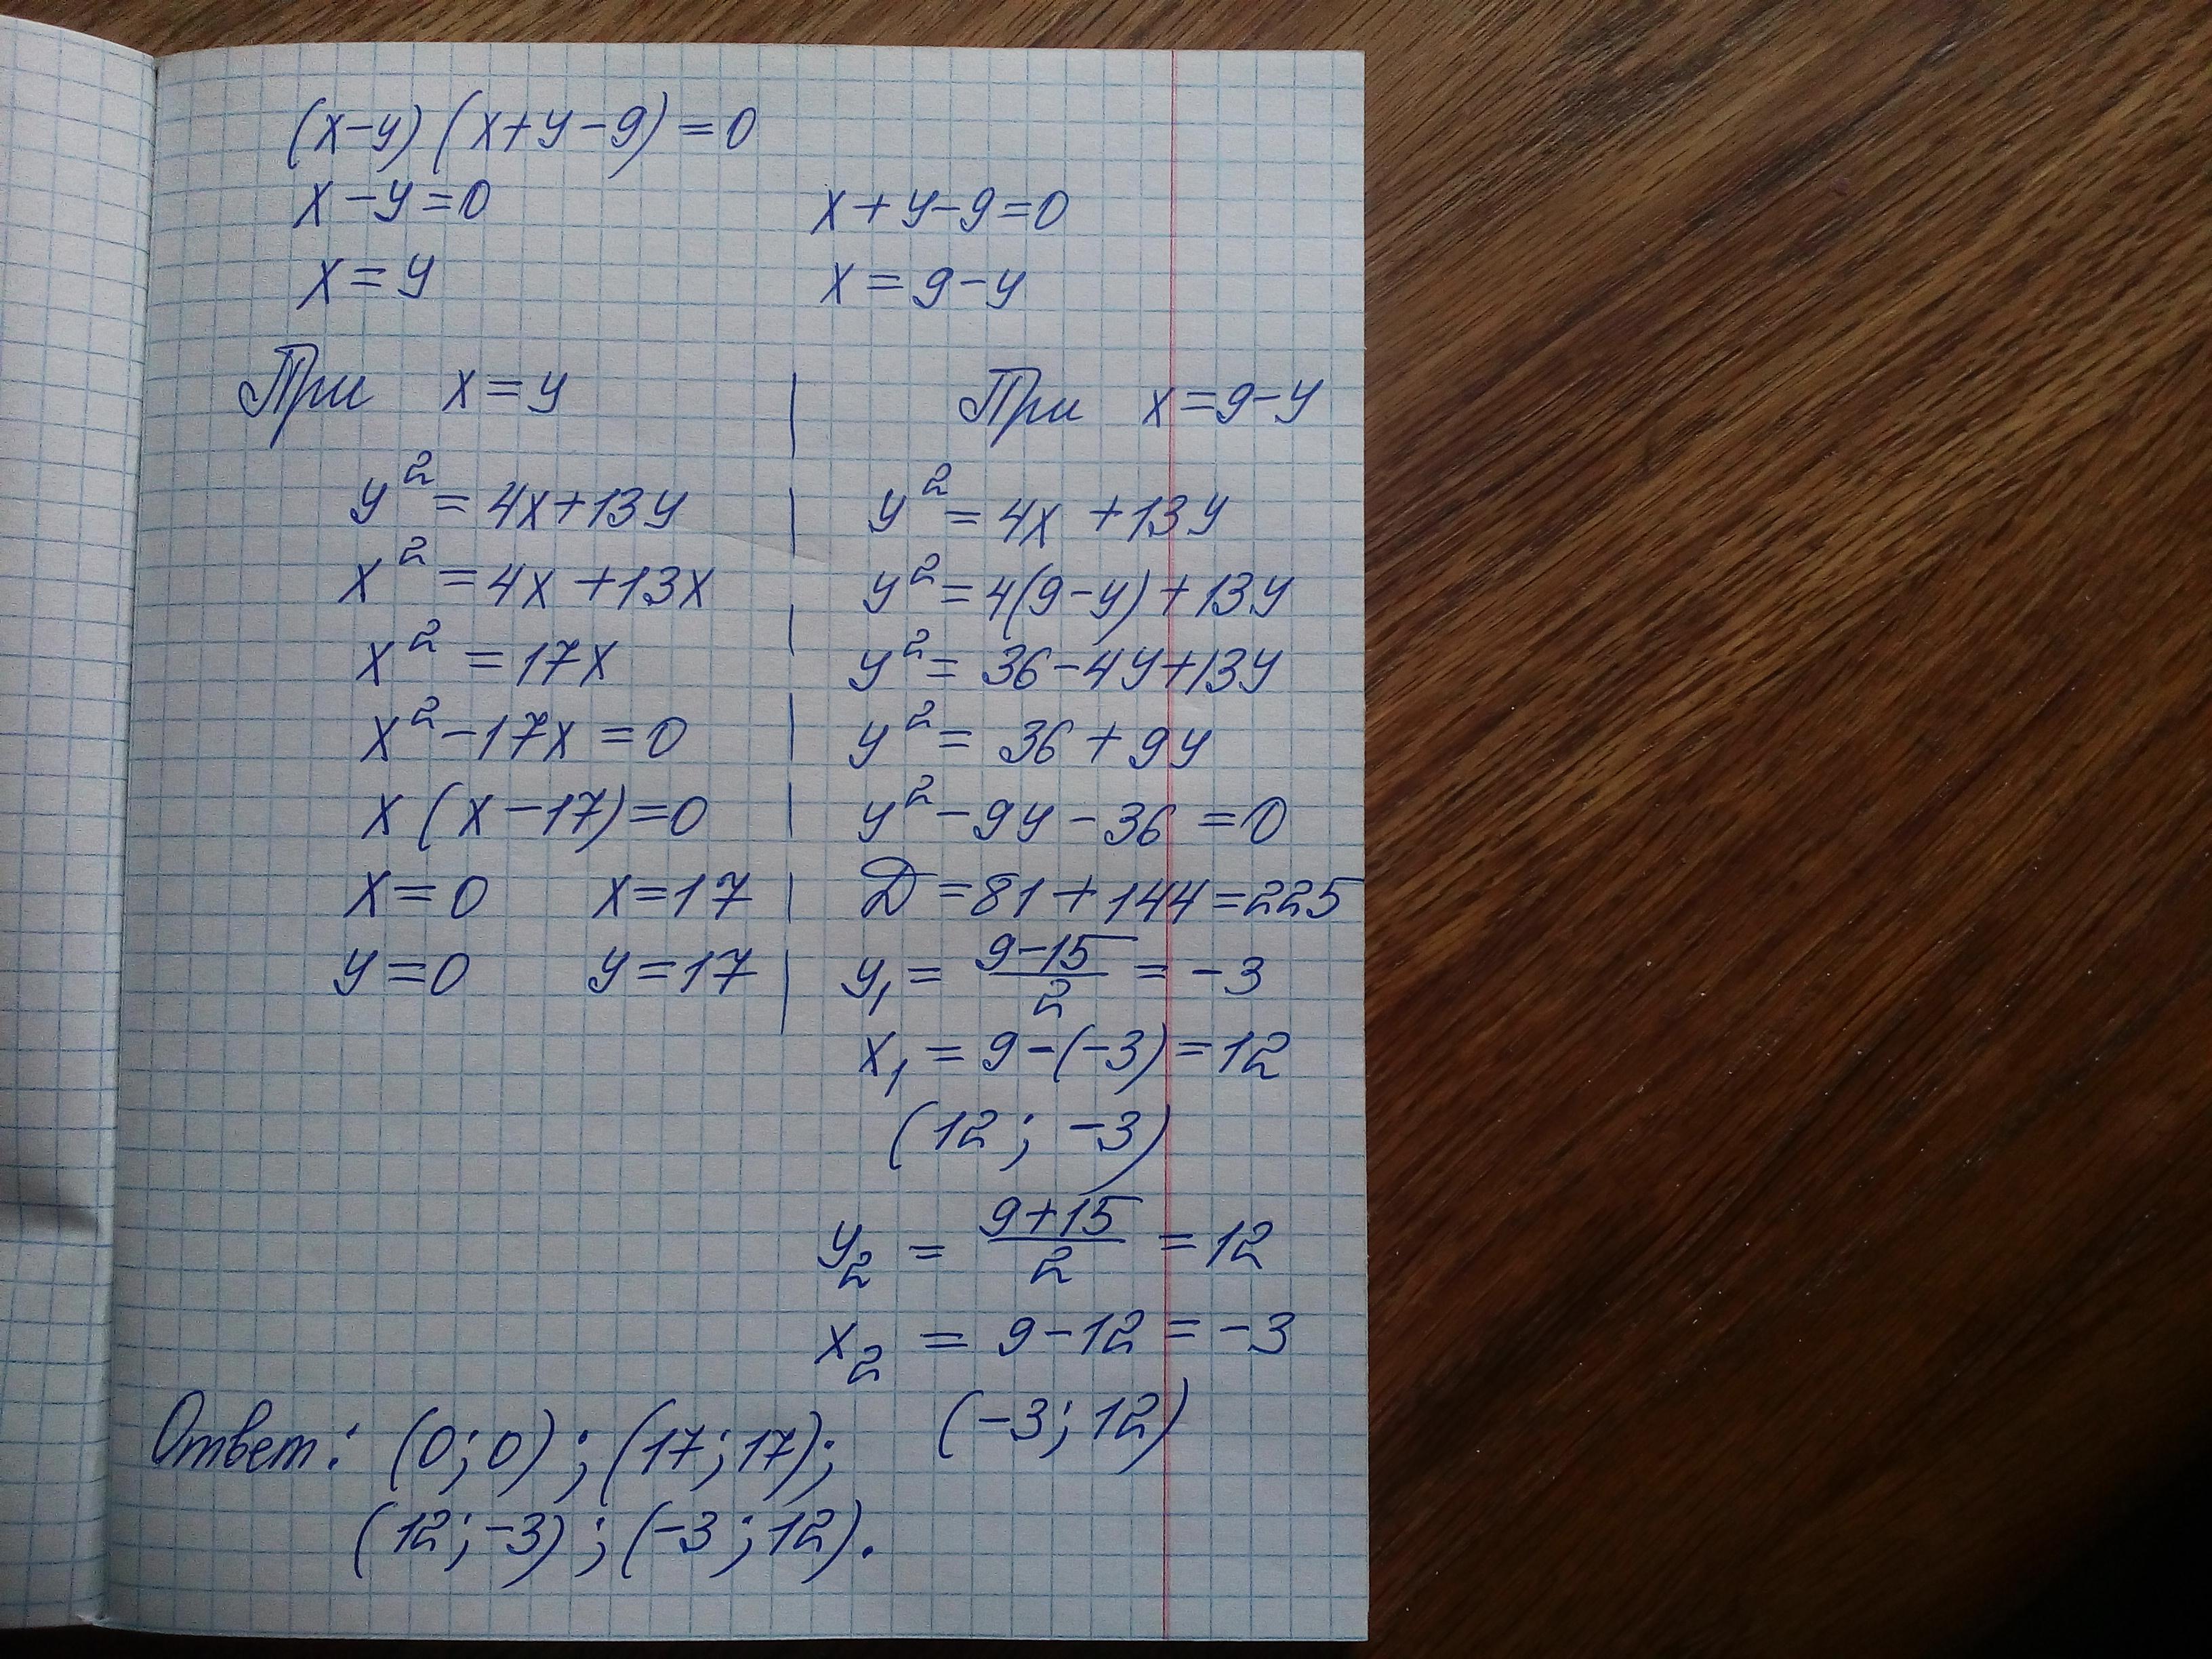 (x-y)(x+y-9)=0
x-y=0
x+y-9=0
x=y
x=9-y
При x=y
y²=4x+13y
x²=4x+13x
x²=17x
x²-17x=0
x(x-17)=0
x=0 x=17
y=0 y=17
При x=9-y
y²=4x+13y
y²=4(9-y)+13y
y²=36-4y+13y
y²=36+9y
y²-9y-36=0
Д=81+144=225
y₁=(9-15)/2=-3
x₁=9-(-3)=12
(12;-3)
y₂=(9+15)/2=12
x₂=9-12=-3
(-3;12)
Ответ: (0;0);(17;17);
(12;-3);(-3;12).